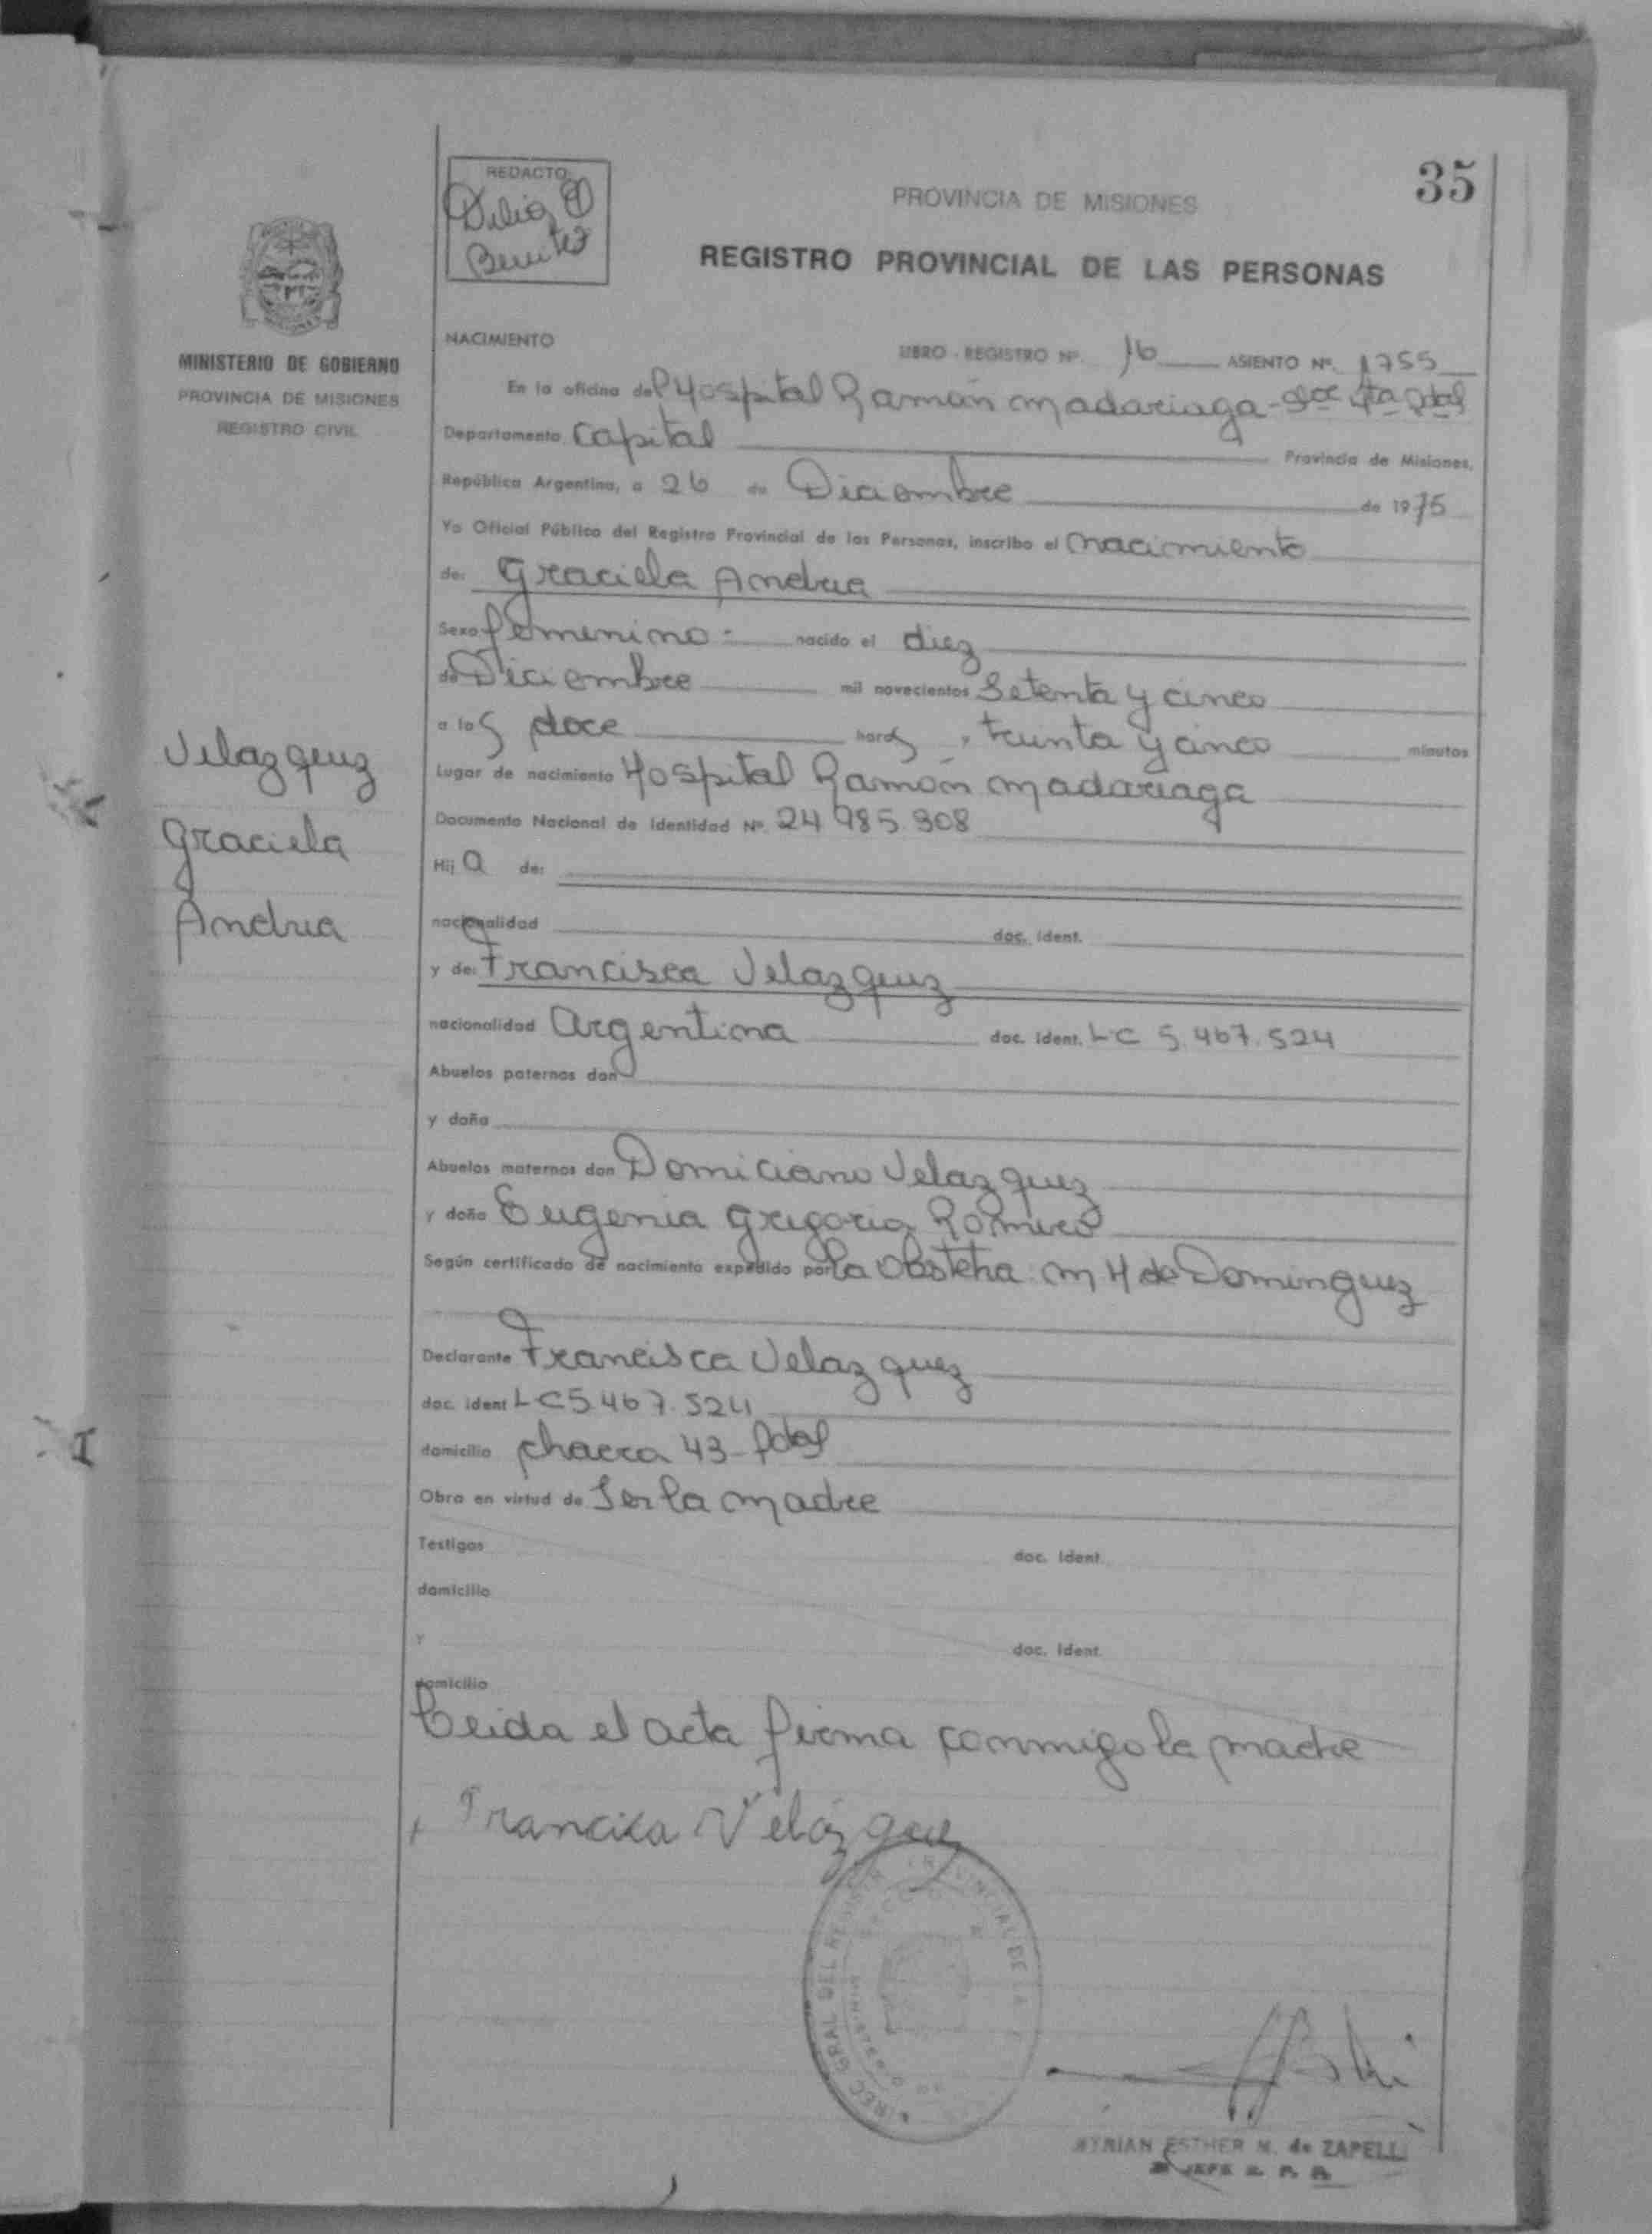 35
REDACTO
Delia
Benitez
PROVINCIA DE MISIONES
REGISTRO PROVINCIAL DE LAS PERSONAS
MINISTERIO DE GOBIERNO
PROVINCIA DE MISIONES
REGISTRO CIVIL
NACIMIENTO
LIBRO - REGISTRO Nº. 16 ASIENTO Nº. 1755
En la oficina del Hospital Ramón Madariaga - Secc 4ta Pdas
Departamento Capital Provincia de Misiones,
República Argentina, a 26 de Diciembre de 1975
Yo Oficial Público del Registro Provincial de las Personas, inscribo el nacimiento
de: Graciela Andrea
Sexo femenino nacido el diez
de Diciembre mil novecientos setenta y cinco
a las doce horas, treinta y cinco minutos
Lugar de nacimiento Hospital Ramón Madariaga
Documento Nacional de Identidad Nº. 24 985.308
Hija de:
nacionalidad doc. Ident.
y de: Francisca Velazquez
nacionalidad Argentina doc. Ident. LC 5.467.524
Abuelos paternos don
y doña
Abuelos maternos don Domiciano Velazquez
y doña Eugenia Gregoria Romero
Según certificado de nacimiento expedido por la Obstetra M H de Dominguez
Declarante Francisca Velazquez
doc. ident LC 5.467.524
domicilio chacra 43 - Pdas
Obra en virtud de Ser la madre
Testigos doc. Ident.
domicilio
y doc. Ident.
domicilio
Leida el acta firma conmigo la madre
Francisca Velázquez
Velazquez
Graciela
Andrea
MYRIAN ESTHER M. de ZAPELLI
JEFE